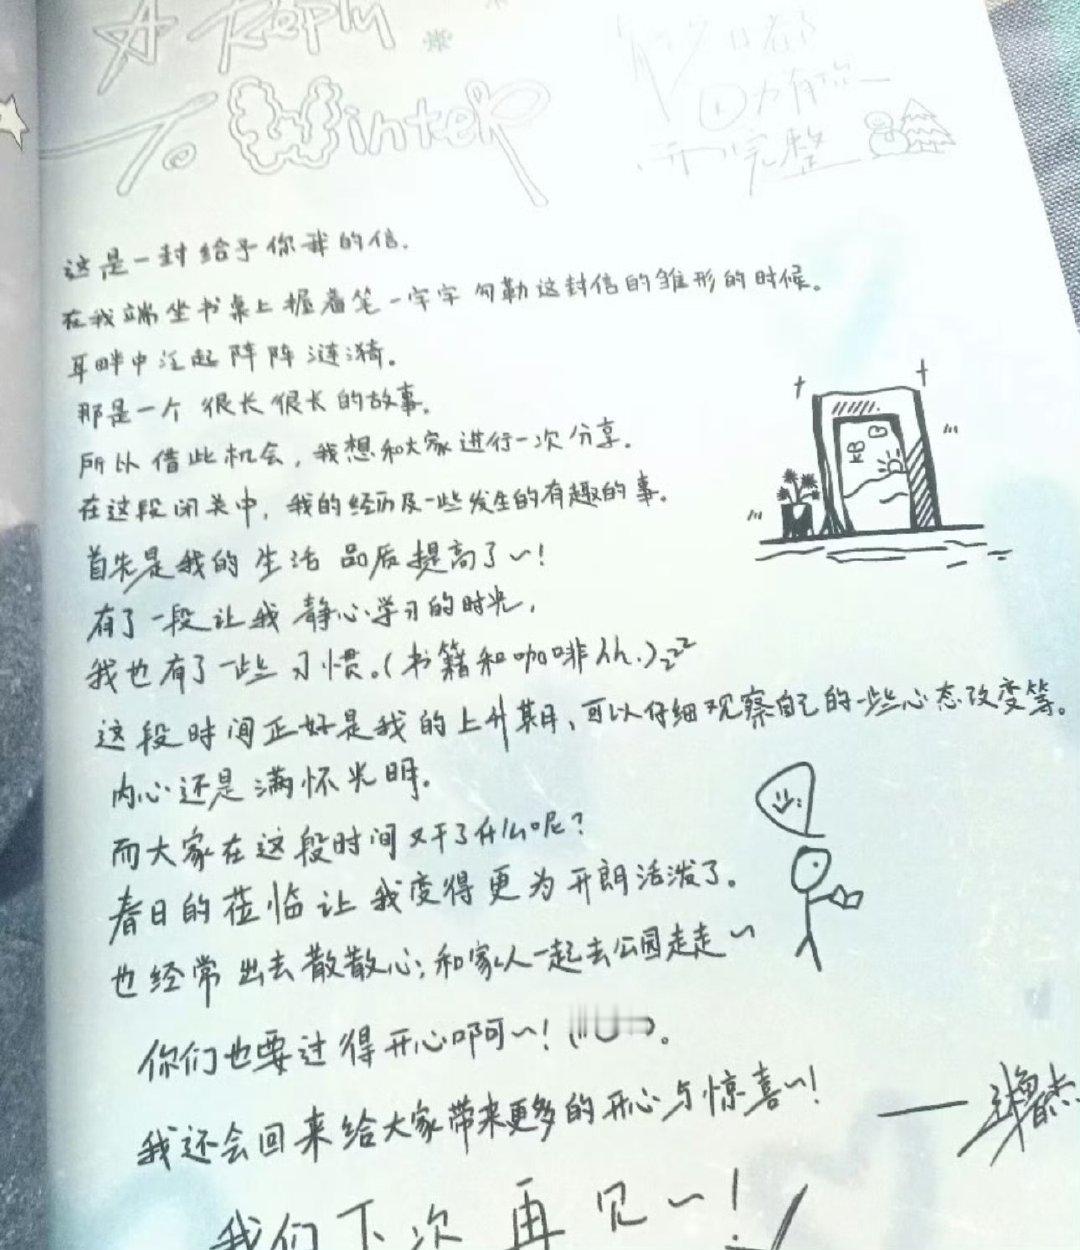 A Reply
To Winter
这是一封给予你我的信.
在我端坐书桌上握着笔一字字勾勒这封信的雏形的时候。
耳畔中泛起阵阵涟漪。
那是一个很长很长的故事。
所以借此机会，我想和大家进行一次分享.
在这段闭关中，我的经历及一些发生的有趣的事。
首先是我的生活品质提高了~!
有了一段让我静心学习的时光，
我也有了一些习惯。(书籍和咖啡 .)zzz
这段时间正好是我的上升期、可以仔细观察自己的一些心态改变等。
内心还是满怀光明.
而大家在这段时间又干了什么呢?
春日的莅临让我变得更为开朗活泼了。
也经常出去散散心;和家人一起去公园走走~
你们也要过得开心啊~!
我还会回来给大家带来更多的开心与惊喜~!
我们下次再见~!